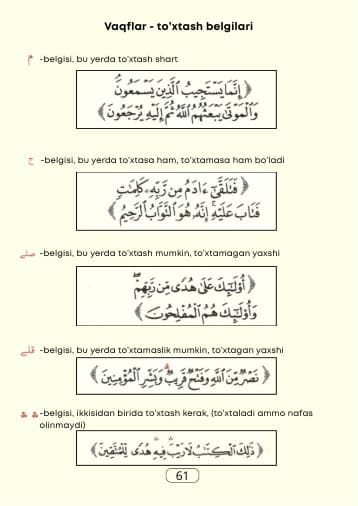 Vaqflar - to'xtash belgilari
م -belgisi, bu yerda to'xtash shart
﴿ إِنَّمَا يَسْتَجِيبُ ٱلَّذِينَ يَسْمَعُونَۘ
وَٱلْمَوْتَىٰ يَبْعَثُهُمُ ٱللَّهُ ثُمَّ إِلَيْهِ يُرْجَعُونَ ﴾
ج -belgisi, bu yerda to'xtasa ham, to'xtamasa ham bo'ladi
﴿ فَتَلَقَّىٰٓ ءَادَمُ مِن رَّبِّهِۦ كَلِمَٰتٍ
فَتَابَ عَلَيْهِۚ إِنَّهُۥ هُوَ ٱلتَّوَّابُ ٱلرَّحِيمُ ﴾
صلے -belgisi, bu yerda to'xtash mumkin, to'xtamagan yaxshi
﴿ أُو۟لَٰٓئِكَ عَلَىٰ هُدًى مِّن رَّبِّهِمْۖ
وَأُو۟لَٰٓئِكَ هُمُ ٱلْمُفْلِحُونَ ﴾
قلے -belgisi, bu yerda to'xtamaslik mumkin, to'xtagan yaxshi
﴿ نَصْرٌ مِّنَ ٱللَّهِ وَفَتْحٌ قَرِيبٌۗ وَبَشِّرِ ٱلْمُؤْمِنِينَ ﴾
ۛ ۛ -belgisi, ikkisidan birida to'xtash kerak, (to'xtaladi ammo nafas
olinmaydi)
﴿ ذَٰلِكَ ٱلْكِتَٰبُ لَا رَيْبَۛ فِيهِۛ هُدًى لِّلْمُتَّقِينَ ﴾
61